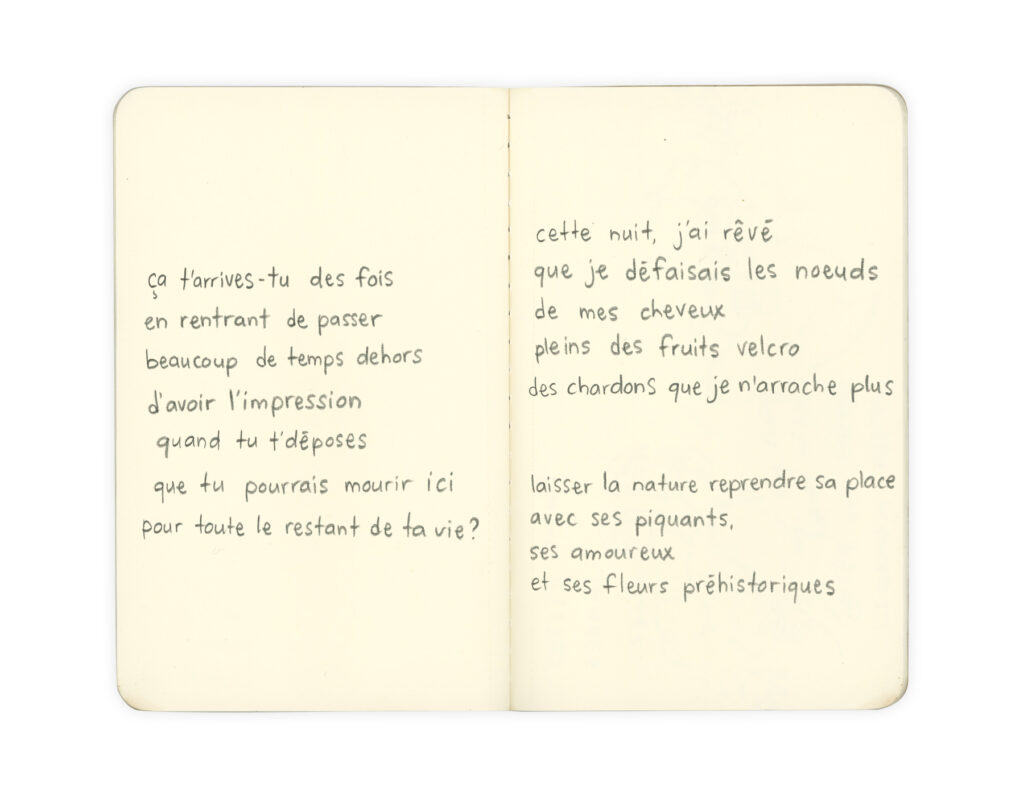 ça t'arrives-tu des fois
en rentrant de passer
beaucoup de temps dehors
d'avoir l'impression
quand tu t'déposes
que tu pourrais mourir ici
pour toute le restant de ta vie?
cette nuit, j'ai rêvé
que je défaisais les noeuds
de mes cheveux
pleins des fruits velcro
des chardons que je n'arrache plus
laisser la nature reprendre sa place
avec ses piquants,
ses amoureux
et ses fleurs préhistoriques